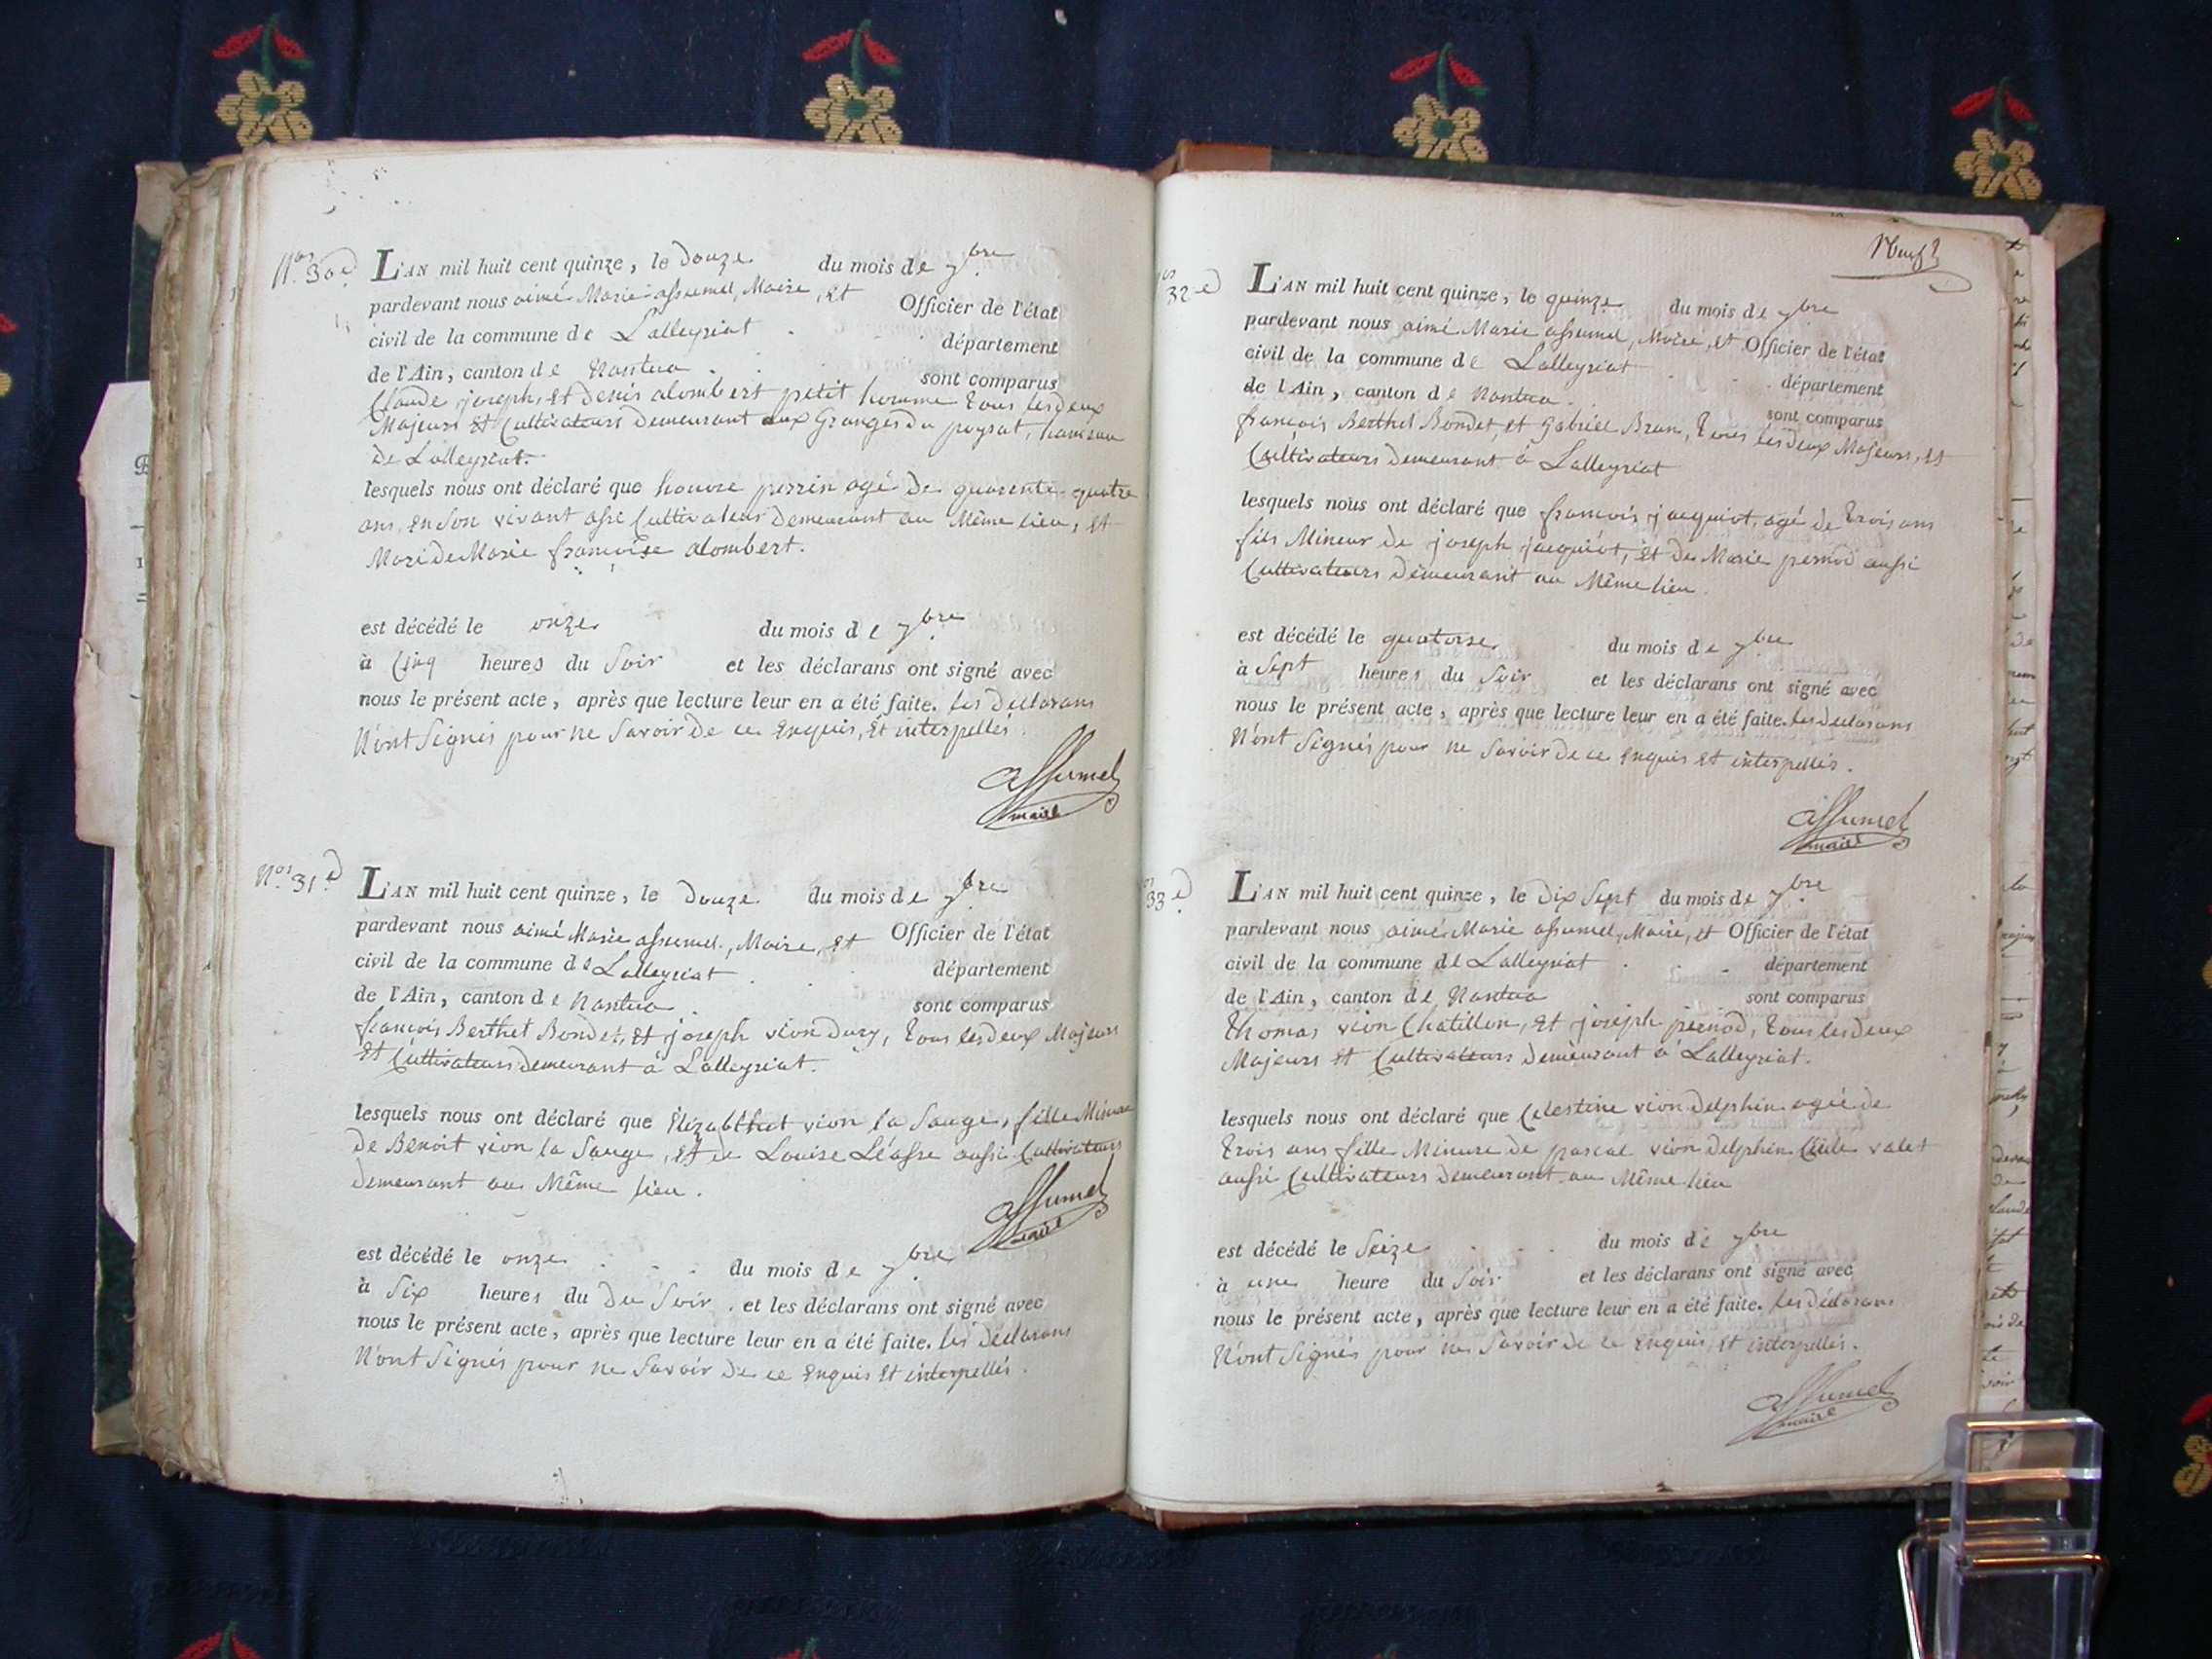 Nos 30e
L'AN mil huit cent quinze, le douze du mois de 7bre
pardevant nous aimé Marie assumel, Maire, et Officier de l'état
civil de la commune de Lalleyriat département
de l'Ain, canton de Nantua sont comparus
Claude joseph, et denis alombert petit homme tous les deux
Majeurs et Cultivateurs demeurant aux Granges du poysat, hameau
de Lalleyriat.
lesquels nous ont déclaré que honore perrin agé de quarente quatre
ans en son vivant assi Cultivateur demeurant au Même lieu, et
Mari de Marie françoise alombert.
est décédé le onze du mois de 7bre
à Cinq heures du Soir et les déclarans ont signé avec
nous le présent acte, après que lecture leur en a été faite. les declarans
N'ont Signés pour ne Savoir de ce Enquis, Et interpellés.
assumel
maire
Nos 31e
L'AN mil huit cent quinze, le douze du mois de 7bre
pardevant nous aimé Marie assumel, Maire, et Officier de l'état
civil de la commune de Lalleyriat département
de l'Ain, canton de Nantua sont comparus
françois Berthet Bondet, Et joseph vion dury, tous les deux Majeurs
Et Cultivateurs demeurant à Lalleyriat.
lesquels nous ont déclaré que Elizabthet vion la Sauge, fille Mineure
de Benoit vion la Sauge, Et de Louise Léasse aussi Cultivateurs
demeurant au Même lieu.
assumel
maire
est décédé le onze du mois de 7bre
à Six heures du du Soir. et les déclarans ont signé avec
nous le présent acte, après que lecture leur en a été faite. les declarans
N'ont Signés pour ne Savoir de ce Enquis Et interpellés.
Neuf
32e
L'AN mil huit cent quinze, le quinze du mois de 7bre
pardevant nous aimé Marie assumel, Maire, et Officier de l'état
civil de la commune de Lalleyriat département
de l'Ain, canton de Nantua sont comparus
françois Berthet Bondet, et Gabriel Brun, tous les deux Majeurs, et
Cultivateurs demeurant à Lalleyriat
lesquels nous ont déclaré que françois jacquiot, agé de trois ans
fils Mineur de joseph jacquiot, Et de Marie pernod aussi
Cultivateurs demeurant au Même lieu.
est décédé le quatorse du mois de 7bre
à Sept heures du Soir et les déclarans ont signé avec
nous le présent acte, après que lecture leur en a été faite. les declarans
N'ont Signés pour ne Savoir de ce Enquis Et interpellés.
assumel
maire
33e
L'AN mil huit cent quinze, le dix Sept du mois de 7bre
pardevant nous aimé Marie assumel, Maire, et Officier de l'état
civil de la commune de Lalleyriat département
de l'Ain, canton de Nantua sont comparus
Thomas vion Chatillon, Et joseph pernod, tous les deux
Majeurs Et Cultivateurs demeurant à Lalleyriat.
lesquels nous ont déclaré que Celestine vion delphin agée de
trois ans fille Mineure de pascal vion delphin valet
aussi Cultivateurs demeurant au Même lieu
est décédé le Seize du mois de 7bre
à une heure du Soir et les déclarans ont signé avec
nous le présent acte, après que lecture leur en a été faite. les déclarans
N'ont Signés pour ne Savoir de ce Enquis, Et interpellés.
assumel
maire